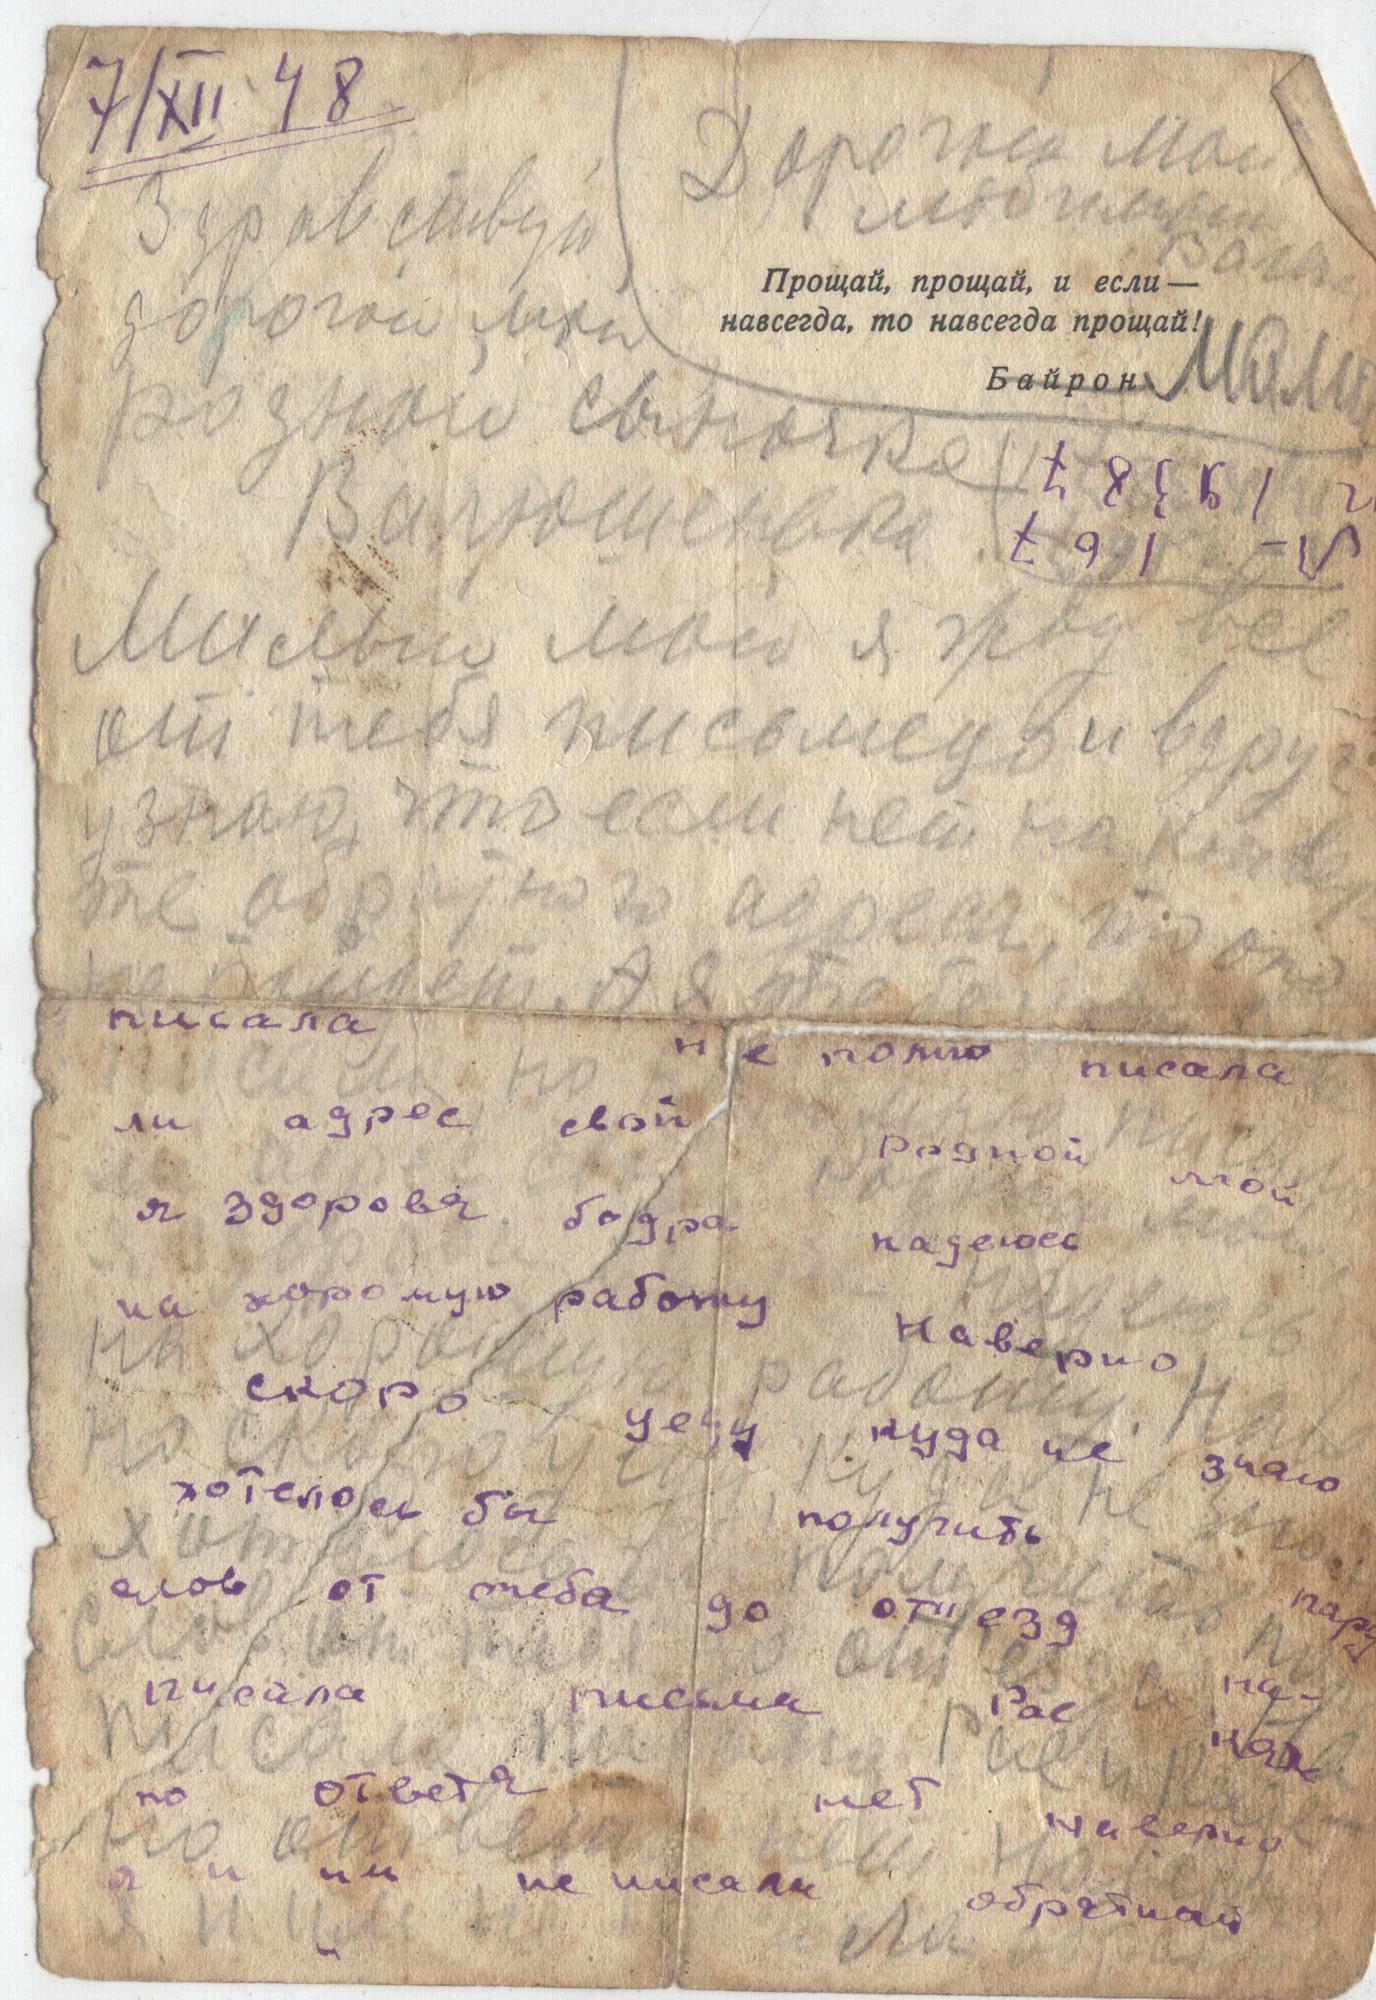 7/XII 48
Здравствуй
дорогой мой
родной сыночка
Валюшенька
Дорогой мой
любимый
Прощай, прощай, и если —
навсегда, то навсегда прощай!
Байрон
Мама
Милый мой я жду все
от тебя письмеца и вдруг
узнаю, что если нет на конвер
те обратного адреса, то оно
не пойдет. А я тебе
писала не помню писала
ли адрес свой Родной мой
я здорова бодра надеюсь
на хорошую работу Наверно
скоро уеду куда не знаю
хотелось бы получить пару
слов от тебя до отъезд
писала письма Рае на-
но ответа нет наверно
я и им не писала обратный